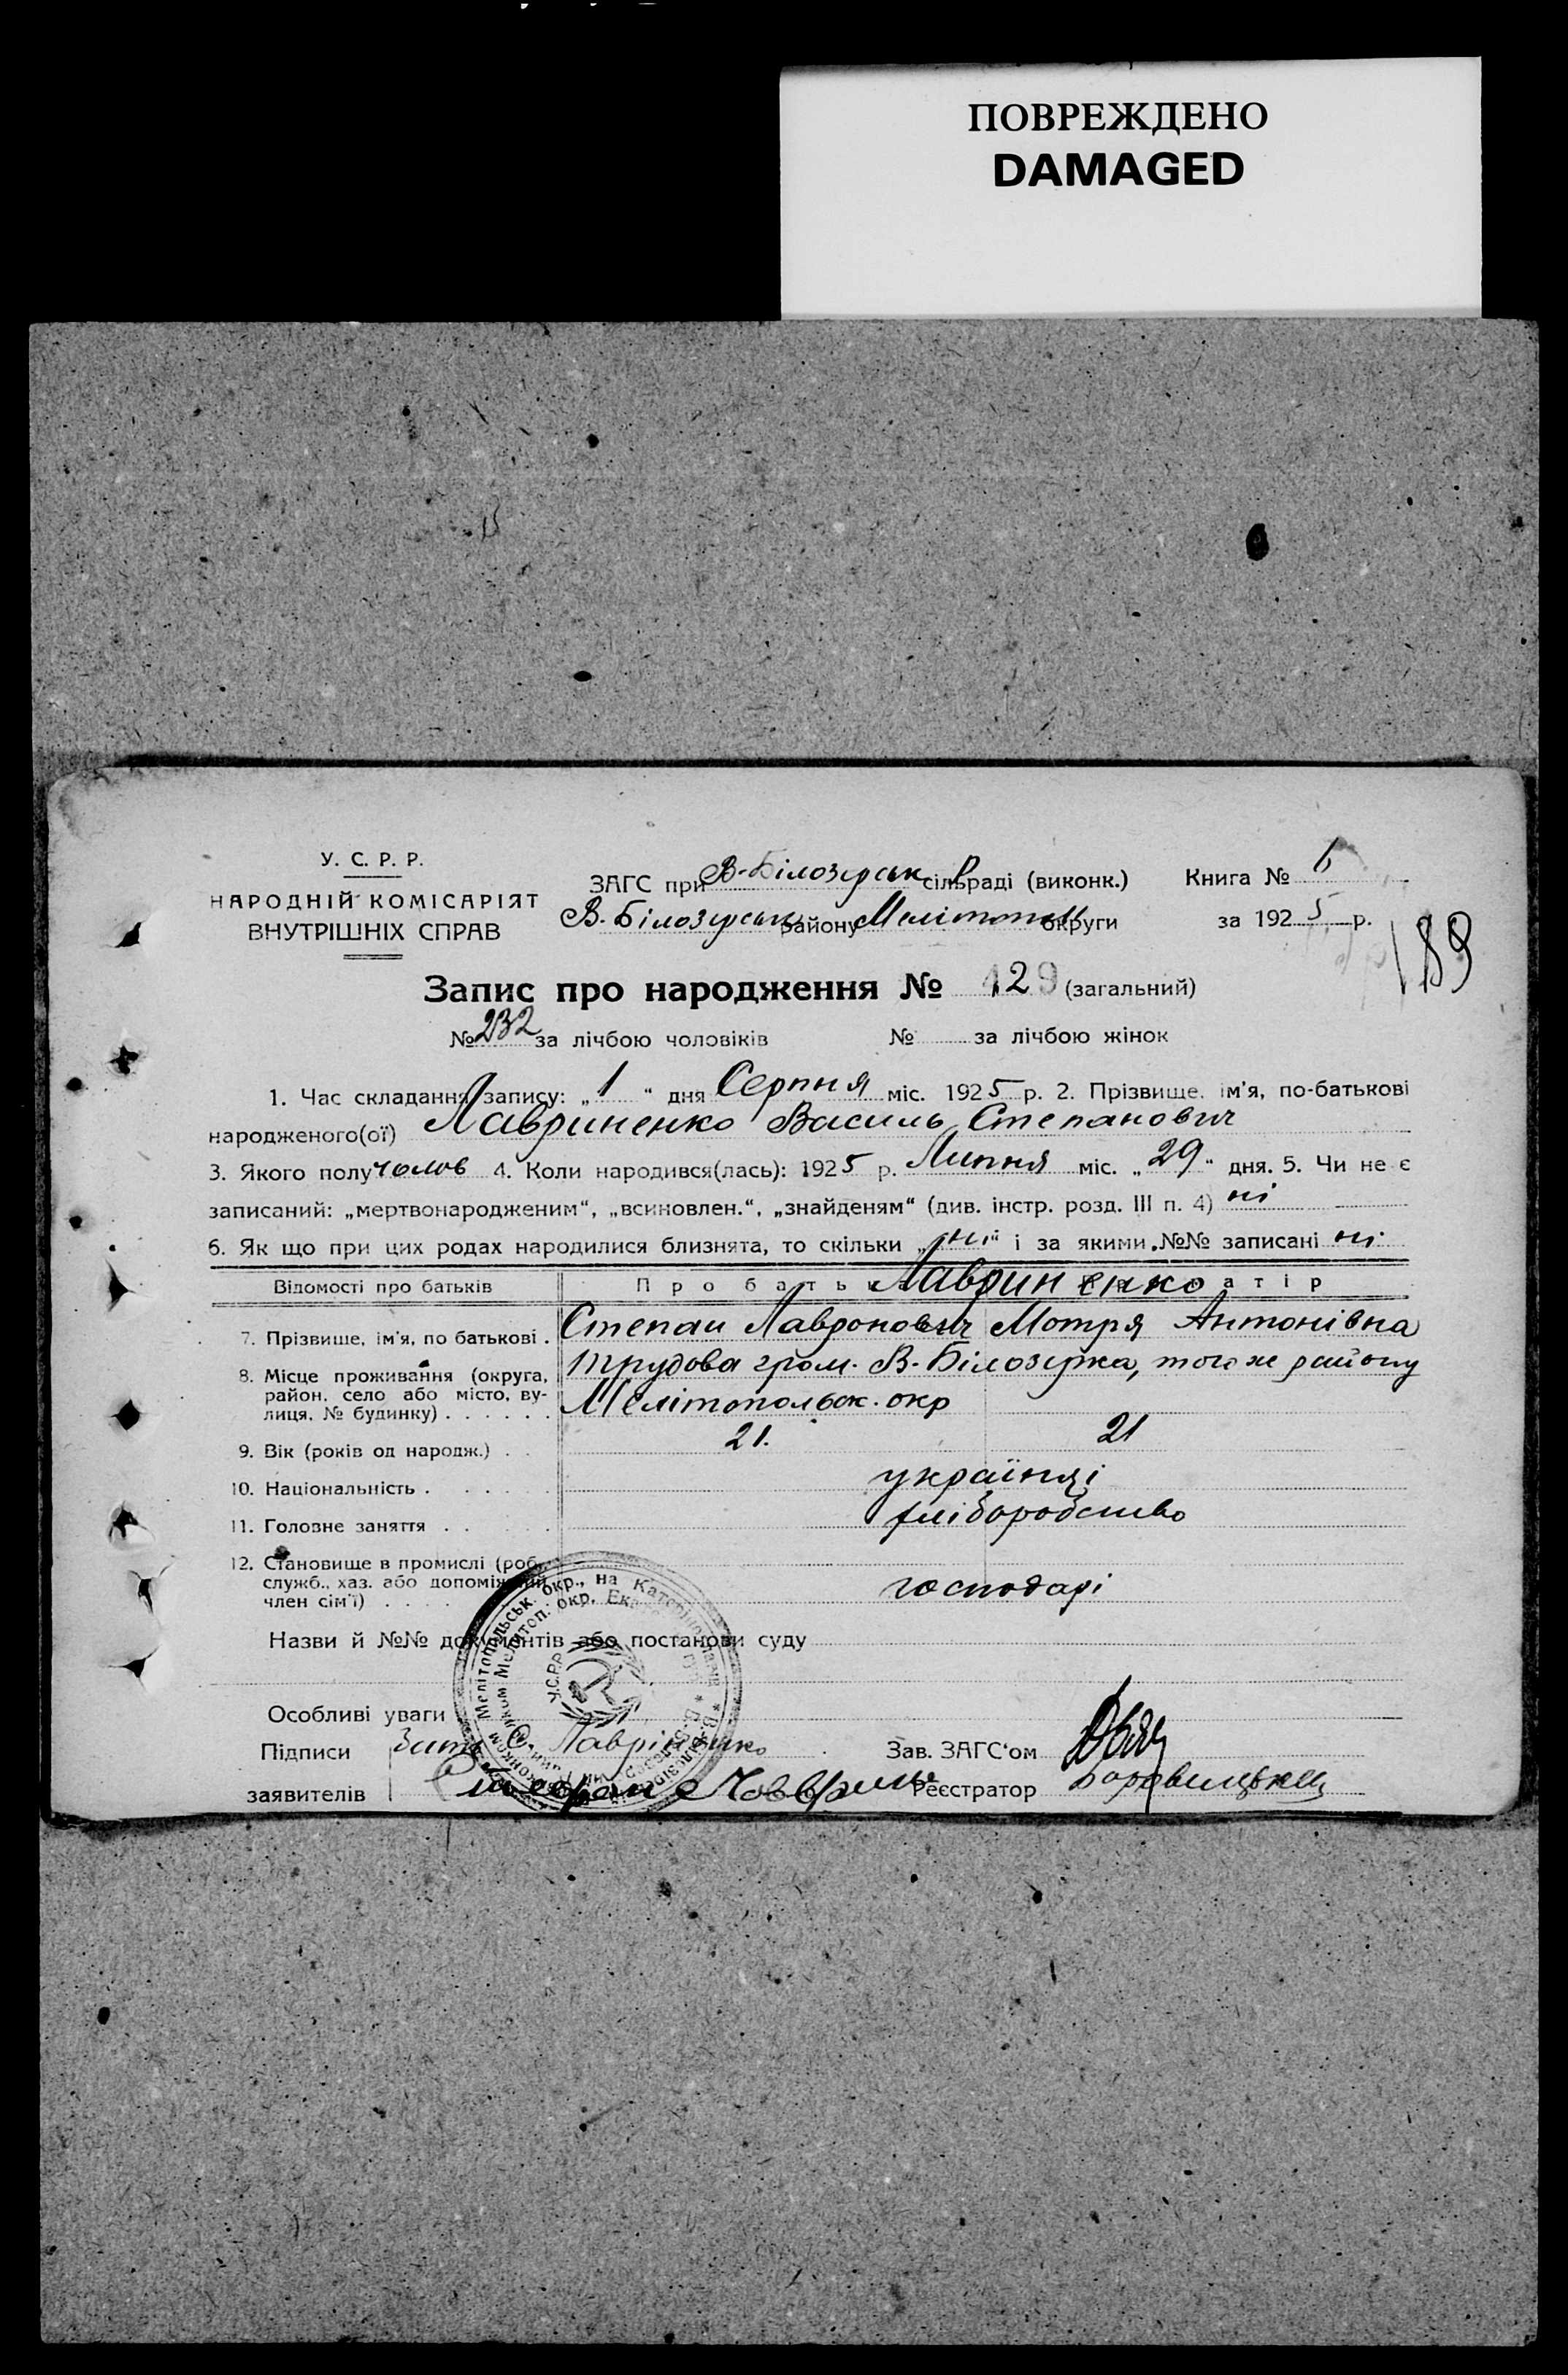 ПОВРЕЖДЕНО
DAMAGED
У. С. Р. Р.
НАРОДНІЙ КОМІСАРІЯТ
ВНУТРІШНІХ СПРАВ
ЗАГС при В-Білозерськ сільраді (виконк.) Книга № 6
В. Білозерськ району Мелітопол округи за 1925 р.
189
Запис про народження № 429 (загальний)
№ 232 за лічбою чоловіків № за лічбою жінок
1. Час складання запису: „1“ дня Серпня міс. 1925 р. 2. Прізвище, ім'я, по-батькові
народженого(ої) Лавриненко Василь Степанович
3. Якого полу чолов 4. Коли народився(лась): 1925 р. Липня міс. „29“ дня. 5. Чи не є
записаний: „мертвонародженим“, „всиновлен.“, „знайденям“ (див. інстр. розд. III п. 4) ні
6. Як що при цих родах народилися близнята, то скільки „ні“ і за якими №№ записані ні
Відомості про батьків Про батьк Лавриненко атір
7. Прізвище, ім'я, по батькові . Степан Лавронович Мотря Антонівна
8. Місце проживання (округа, район, село або місто, вулиця, № будинку) . . . . . . Трудова гром. В-Білозерка, того же району
Мелітопольськ. окр
9. Вік (років од народж.) . . 21. 21
10. Національність . . . . . . україниці
11. Головне заняття . . . . . хліборобство
12. Становище в промислі (роб., служб., хаз. або допоміжний
член сім'ї) . . . . господарі
Назви й №№ документів або постанови суду
Особливі уваги
Підписи Лавріненко Зав. ЗАГС'ом
заявителів Реєстратор